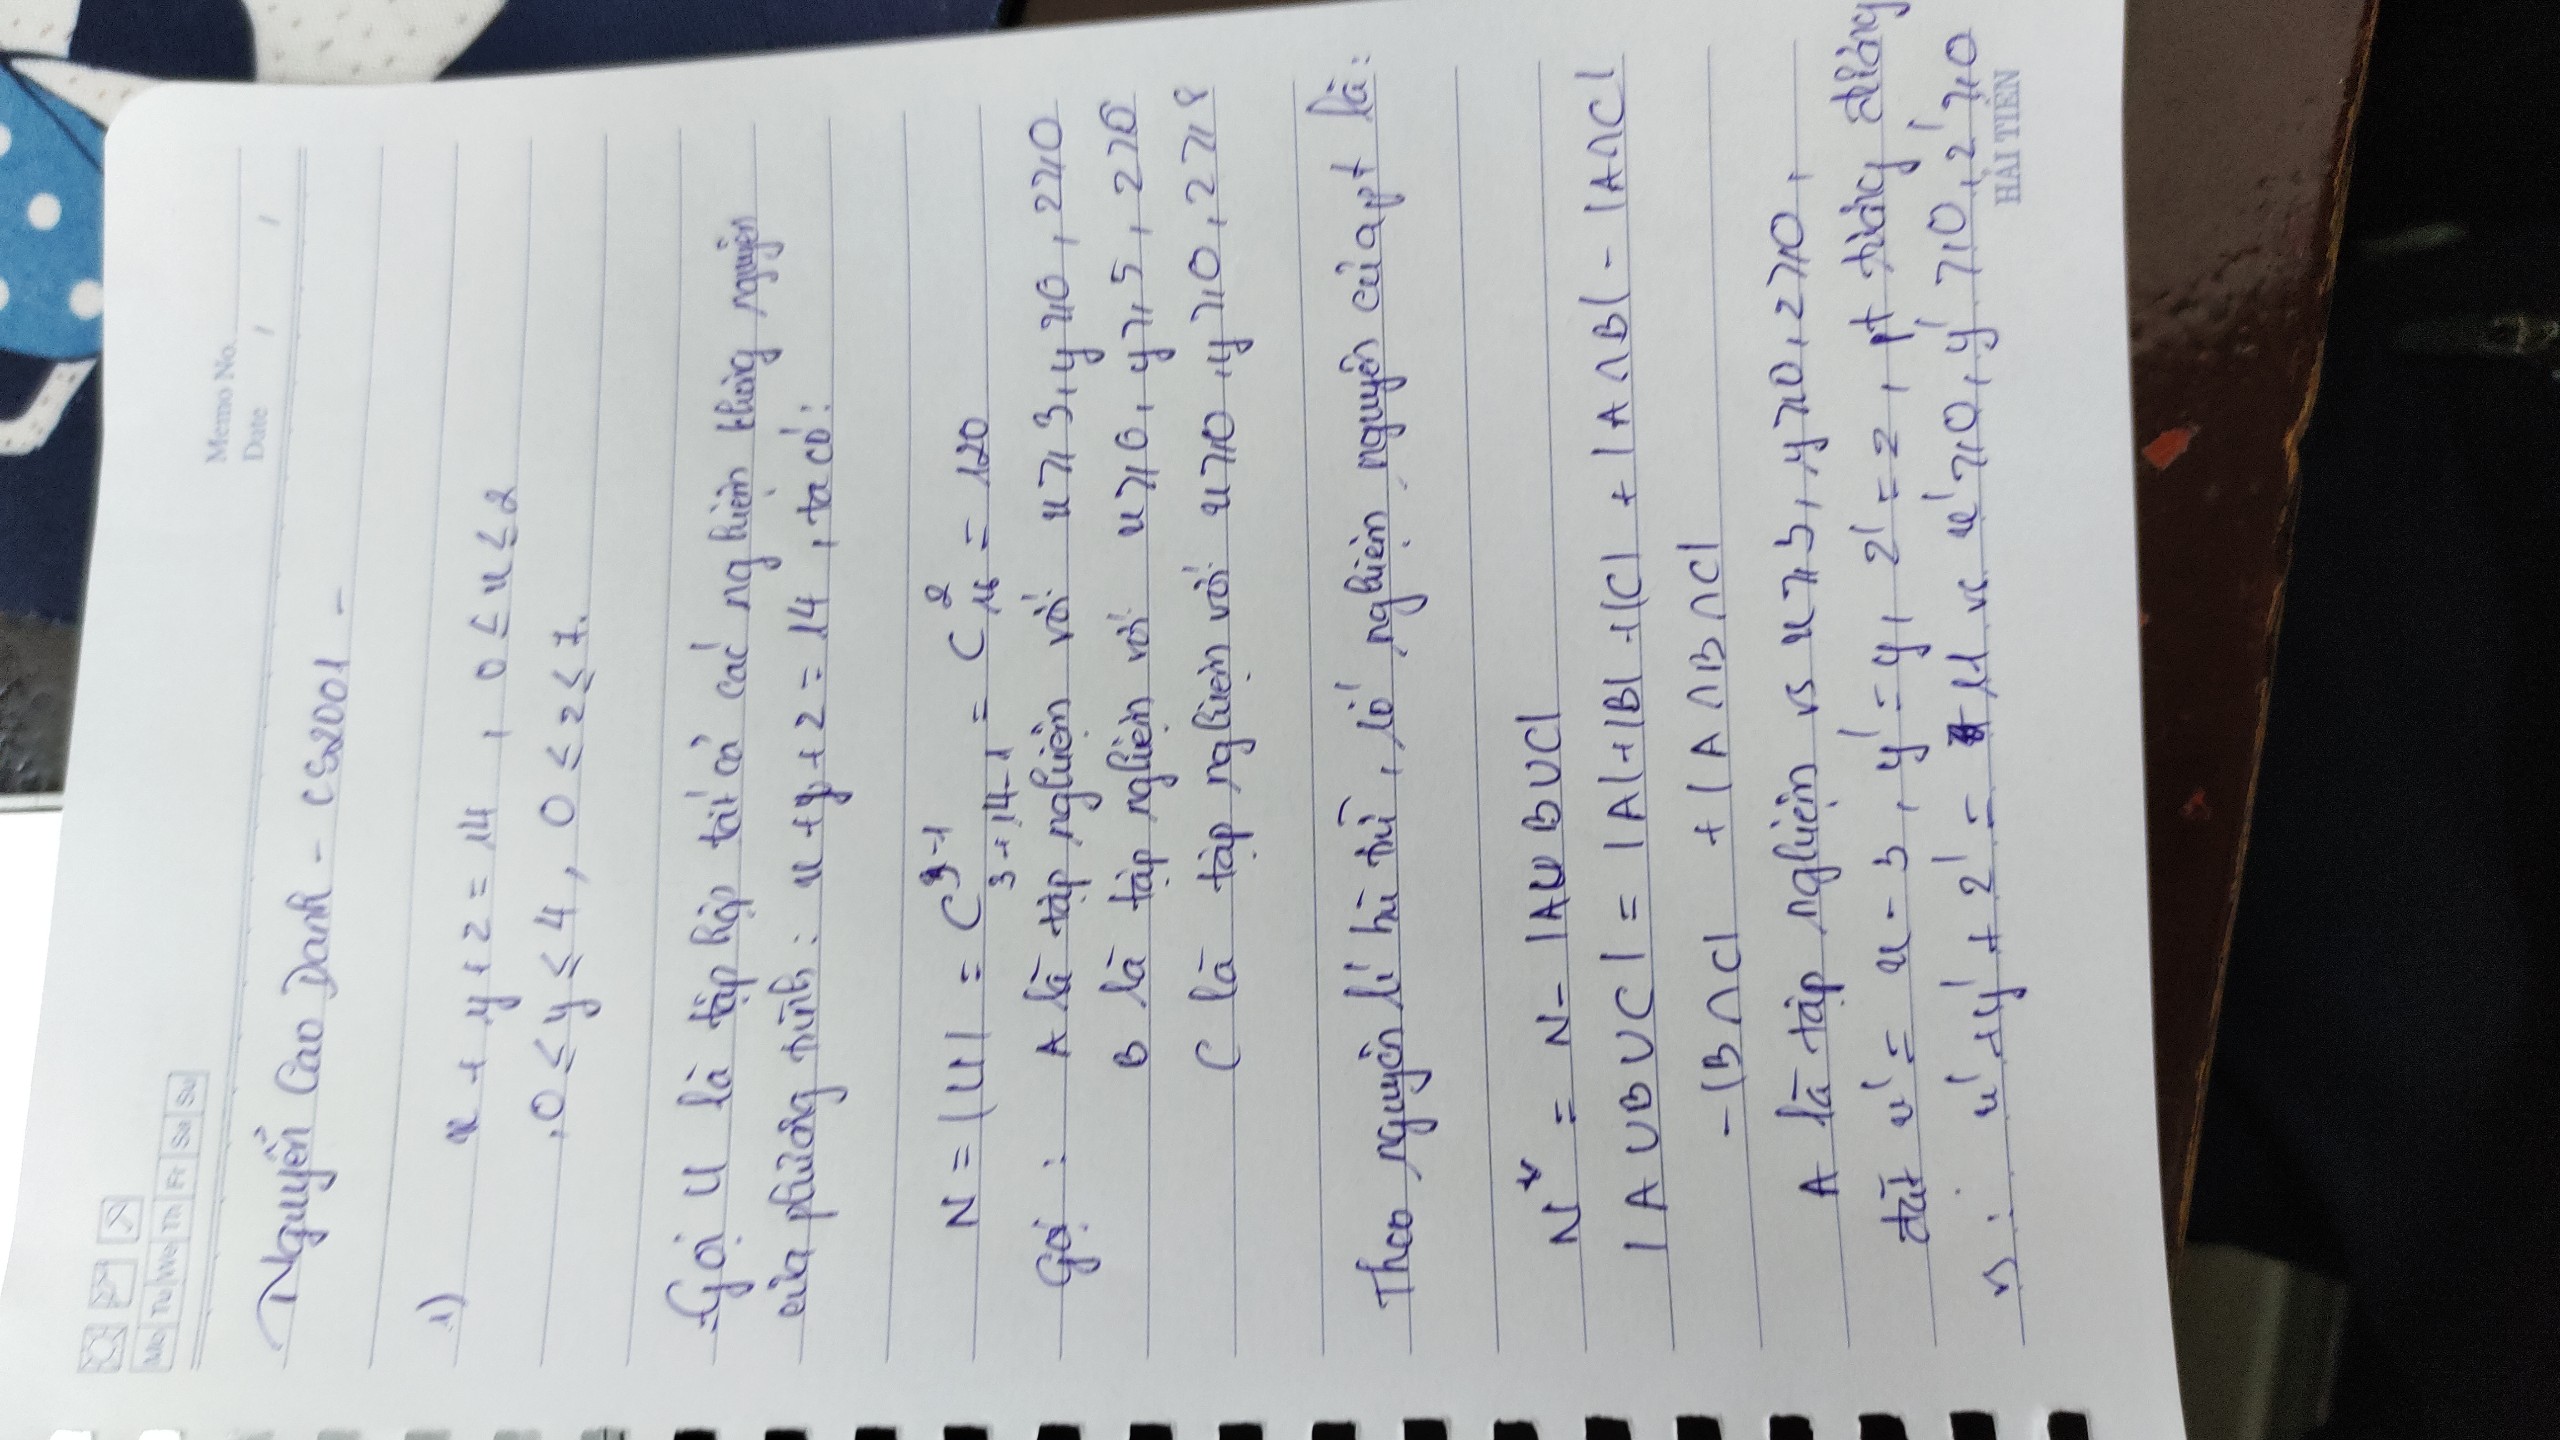 Mo Tu We Th Fr Sa Su
Memo No.
Date / /
Nguyễn Cao Danh - CS2001 -
1) x + y + z = 14 , 0 ≤ x ≤ 2
, 0 ≤ y ≤ 4, 0 ≤ z ≤ 7.
Gọi U là tập hợp tất cả các nghiệm không nguyên
của phương trình: x + y + z = 14 , ta có:
N = |U| = C^{3-1}_{3+14-1} = C^{2}_{16} = 120
Gọi : A là tập nghiệm với x ≥ 3, y ≥ 0, z ≥ 0
B là tập nghiệm với x ≥ 0, y ≥ 5, z ≥ 0
C là tập nghiệm với x ≥ 0, y ≥ 0, z ≥ 8
Theo nguyên lí bù trừ, số nghiệm nguyên của pt là:
N* = N - |A∪B∪C|
|A∪B∪C| = |A|+|B|+|C| + |A∩B| - |A∩C|
-|B∩C| + |A∩B∩C|
A là tập nghiệm vs x ≥ 3, y ≥ 0, z ≥ 0,
đặt x' = x - 3, y' = y, z' = z, pt tương đương
vs : x' + y' + z' = 11 vs x' ≥ 0, y' ≥ 0, z' ≥ 0
HẢI TIẾN